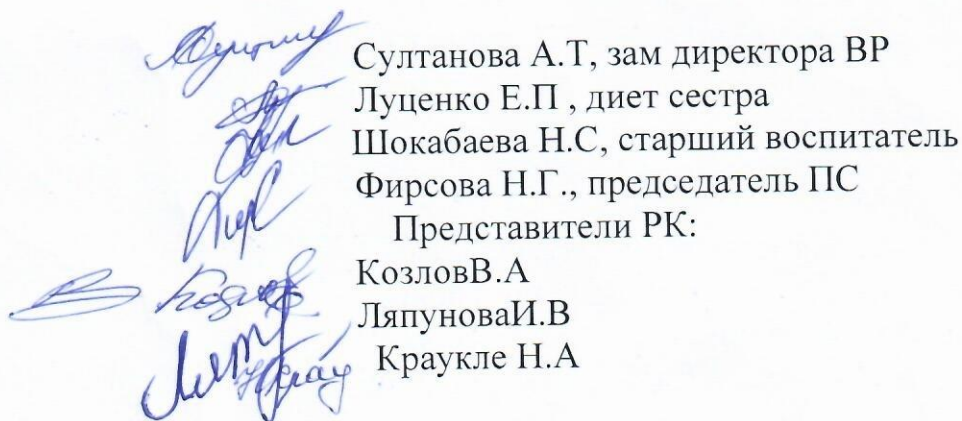 Султанова А.Т, зам директора ВР
Луценко Е.П , диет сестра
Шокабаева Н.С, старший воспитатель
Фирсова Н.Г., председатель ПС
Представители РК:
КозловВ.А
ЛяпуноваИ.В
Краукле Н.А